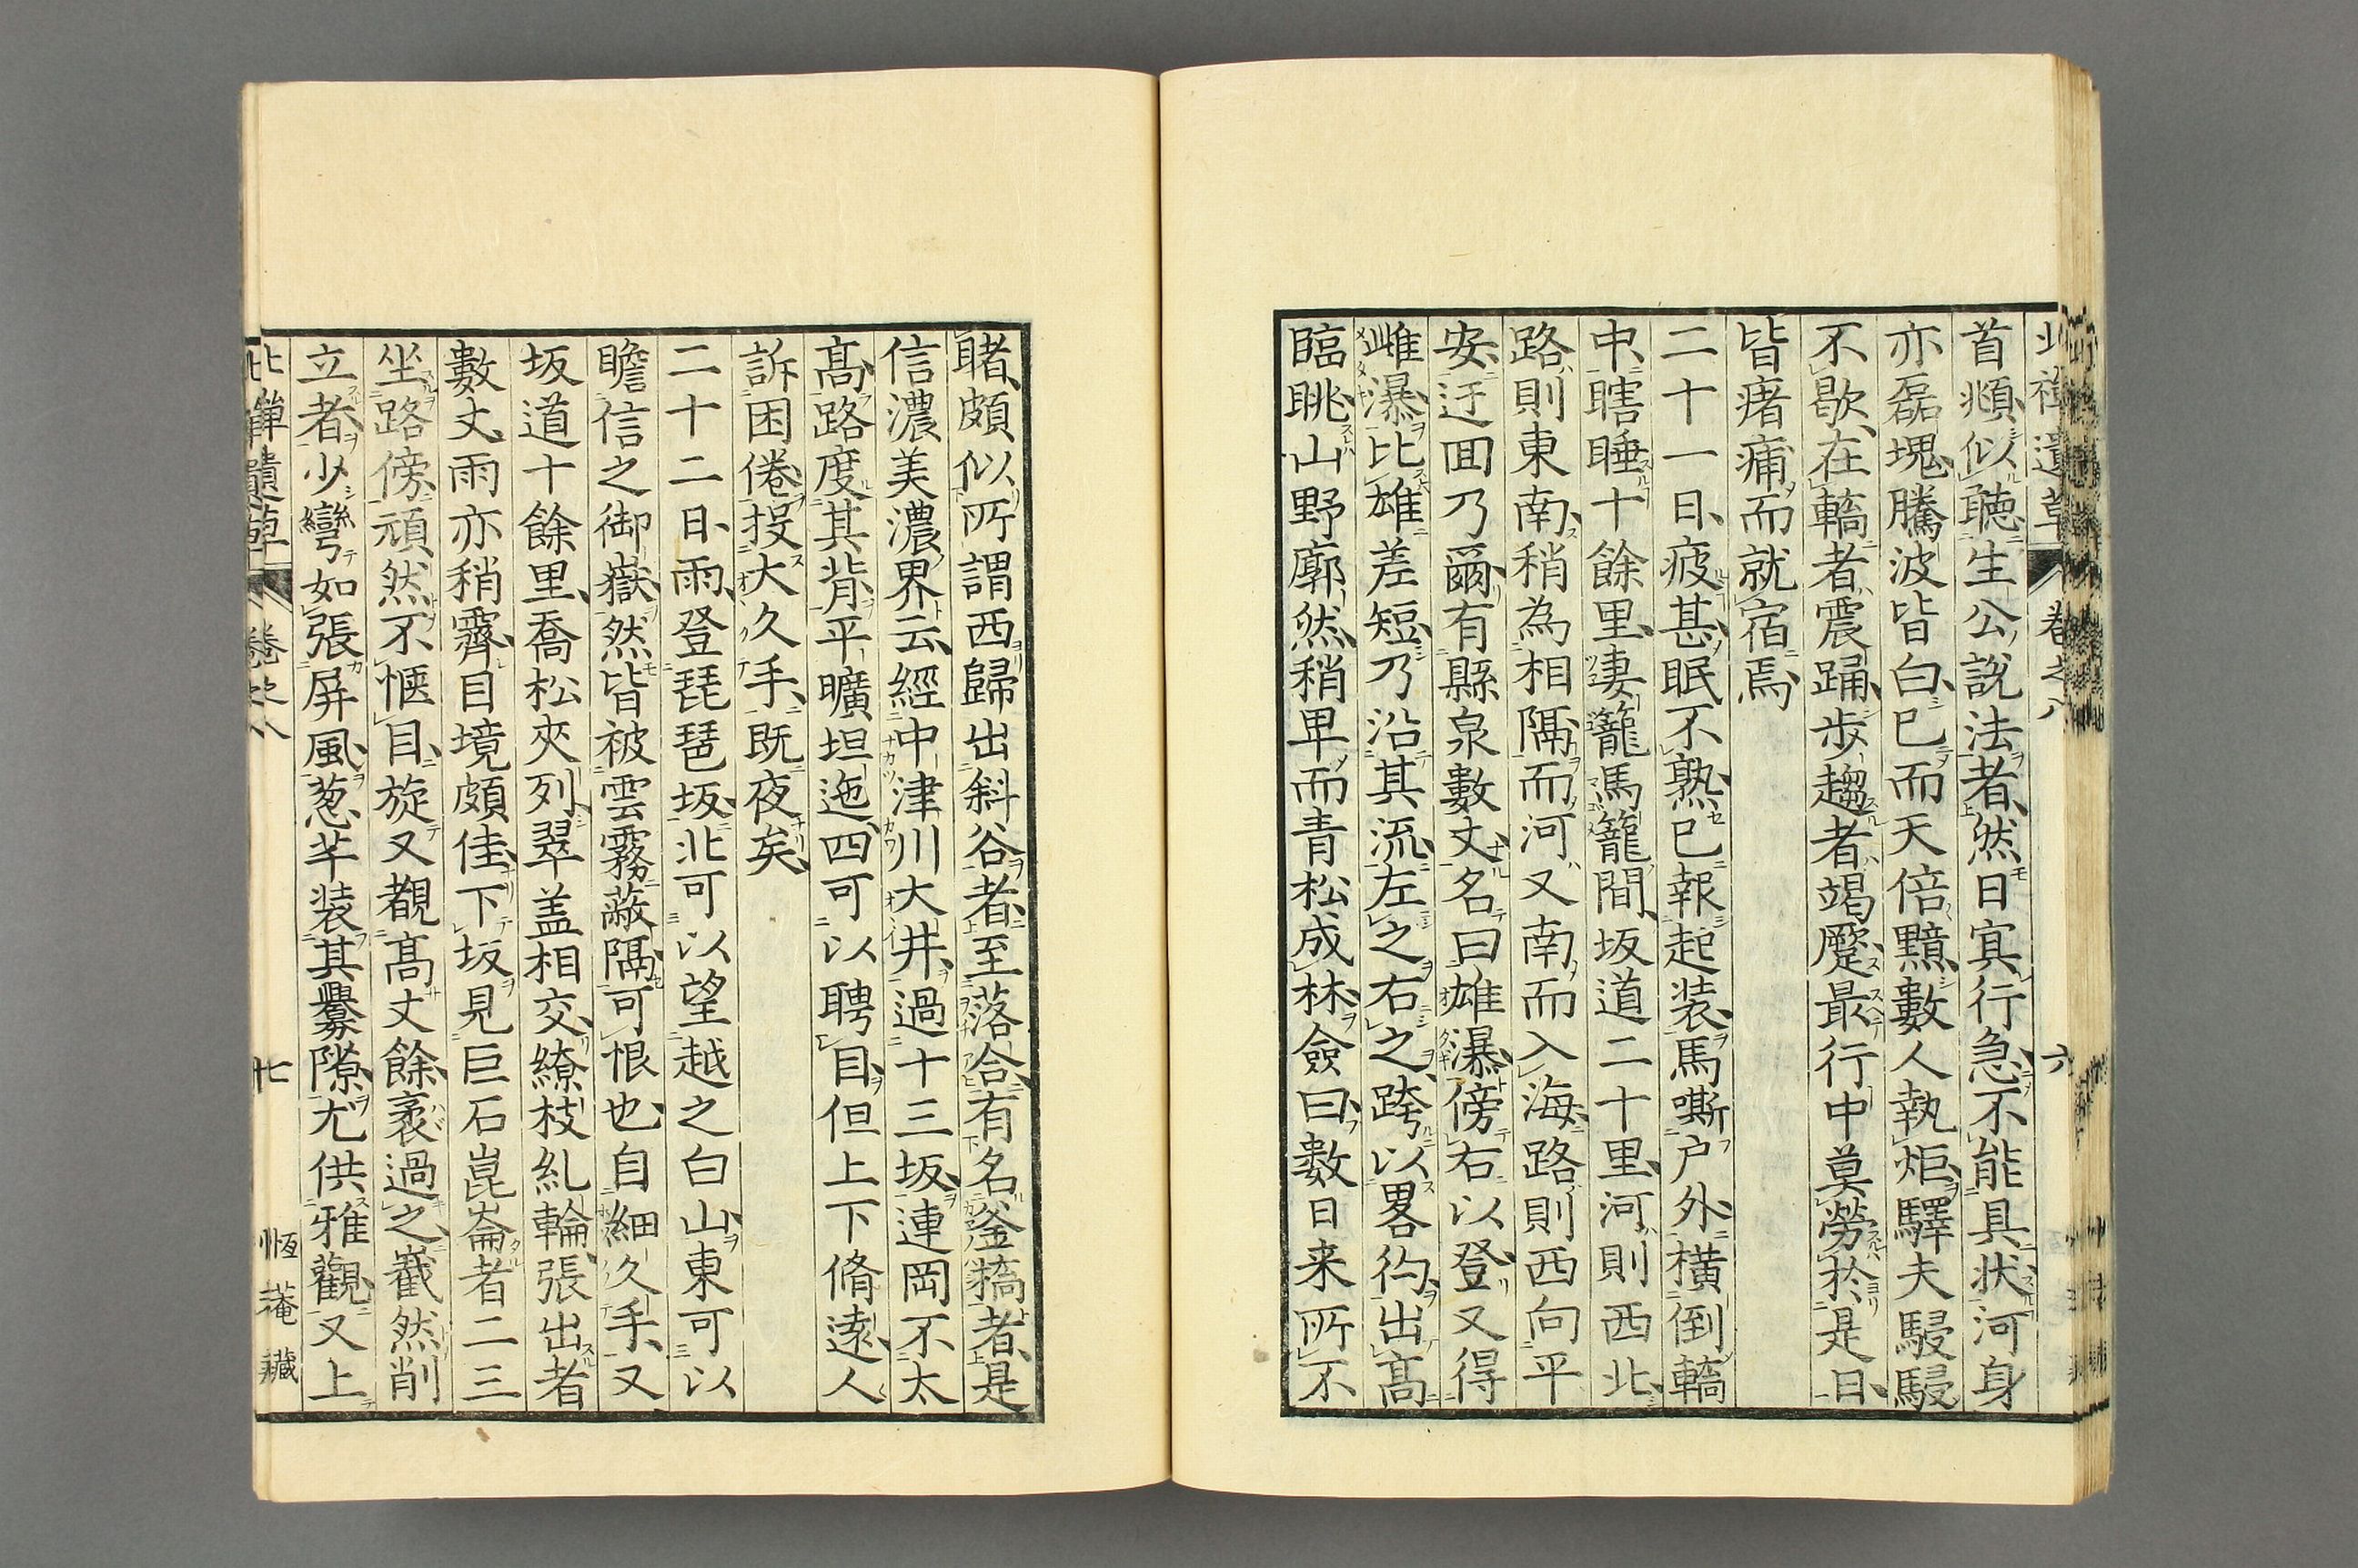 首頫似聴生公説法者然日㝠行急不能具状河身
亦磊塊騰波皆白已而天倍黯數人執炬驛夫駸駸
不歇在轎者震踊歩趨者竭蹷最行中莫勞於是日
皆瘏痡而就宿焉
二十一日疲甚眠不熟已報起装馬嘶户外横倒轎
中瞎睡十餘里妻籠馬籠間坂道二十里河則西北
路則東南稍為相隔而河又南而入海路則西向平
安迂囬乃爾有縣泉數丈名曰雄瀑傍右以登又得
雌瀑比雄差短乃沿其流左之右之跨以畧彴出髙
臨眺山野廓然稍卑而青松成林僉曰數日来所不
睹頗似所謂西歸出斜谷者至落合有名釜𣘺者是
信濃美濃界云經中津川大井過十三坂連岡不太
髙路度其背平曠坦迤四可以聘目但上下脩逺人
訴困倦投大久手既夜矣
二十二日雨登琵琶坂北可以望越之白山東可以
瞻信之御嶽然皆被雲霧蔽隔可恨也自細久手又
坂道十餘里喬松夾列翠盖相交繚枝糺輪張出者
數丈雨亦稍霽目境頗佳下坂見巨石崑崙者二三
坐路傍頑然不愜目旋又覩髙丈餘袤過之嶻然削
立者少彎如張屏風葱芊装其釁隙尤供雅觀又上
北禅遺草
卷之八
六
北禅遺草
卷之八
七
恆菴藏